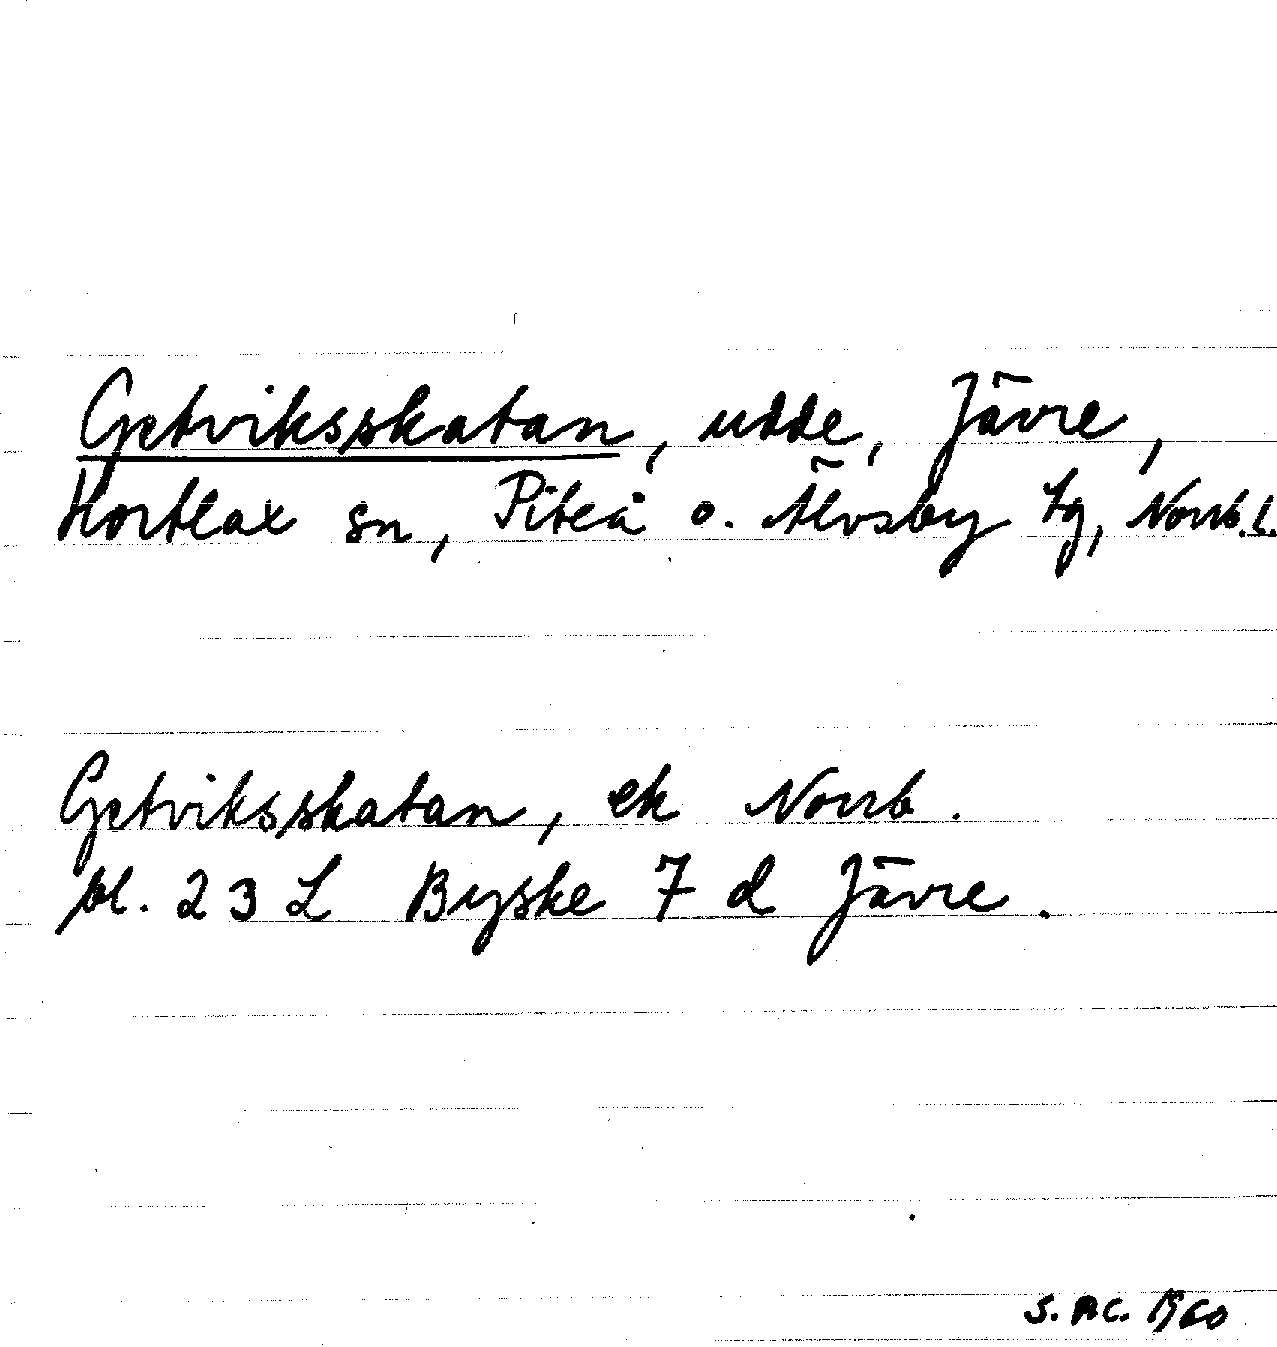 Getviksskatan, udde, Jävre,
Hortlax sn, Piteå o. Älvsby tg, Norrb.l.
Getviksskatan, ek Norrb.
bl. 23 L Byske 7 d Jävre.
S. 1960